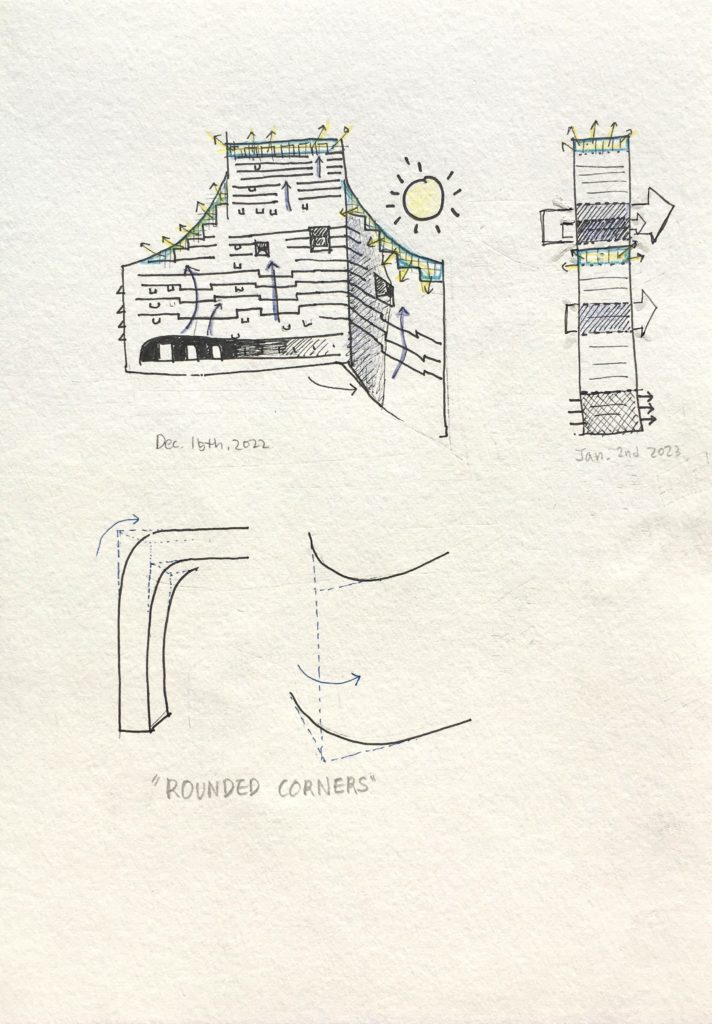 Dec. 16th, 2022
Jan. 2nd 2023
"ROUNDED CORNERS"